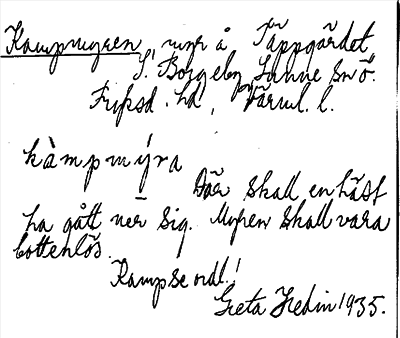 Kampmyren, myr å Täppgärdet,
S. Borgeby, Sunne sn ö.
Fryksd. hd, Värml. l.
kàmpmýra
Där skall en häst
ha gått ner sig. Myren skall vara
bottenlös.
Kamp se ordl.!
Greta Hedin 1935.